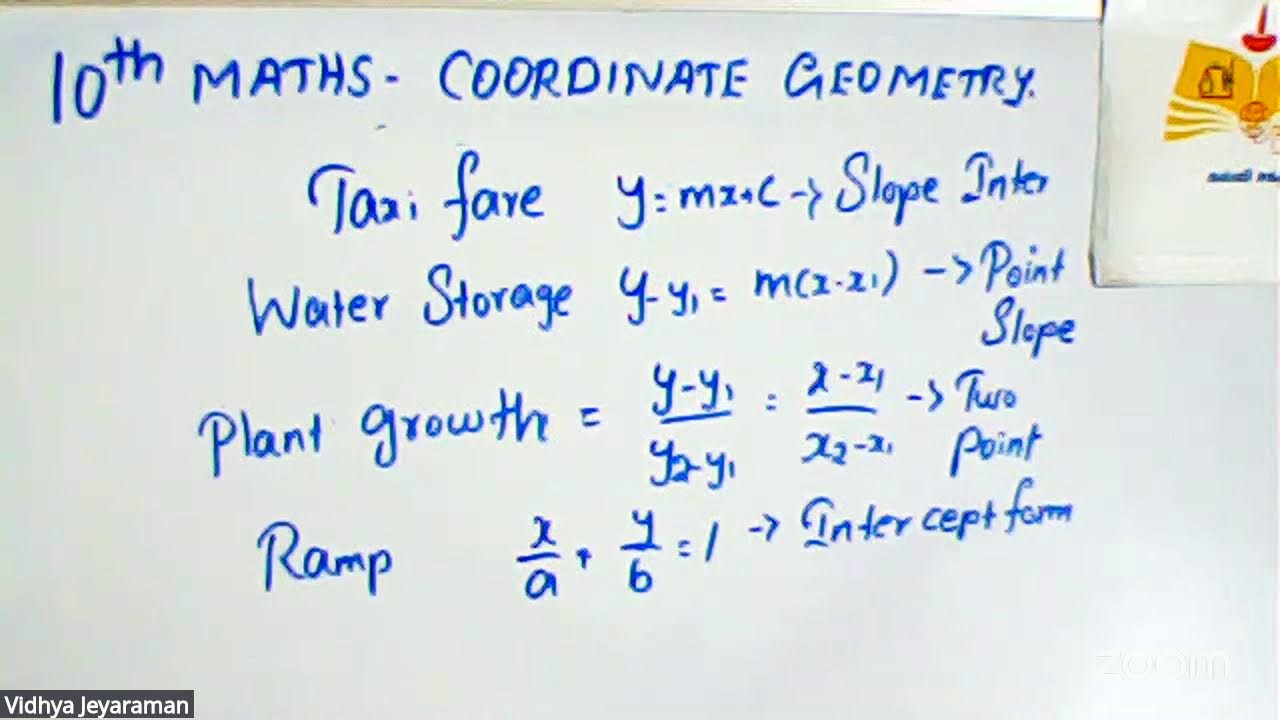 10th MATHS - COORDINATE GEOMETRY.
Taxi fare y = mx + c -> Slope Inter
Water Storage y - y₁ = m(x - x₁) -> Point
Slope
Plant growth = y - y₁ / y₂ - y₁ = x - x₁ / x₂ - x₁ -> Two
point
Ramp x/a + y/b = 1 -> Intercept form
zoom
Vidhya Jeyaraman